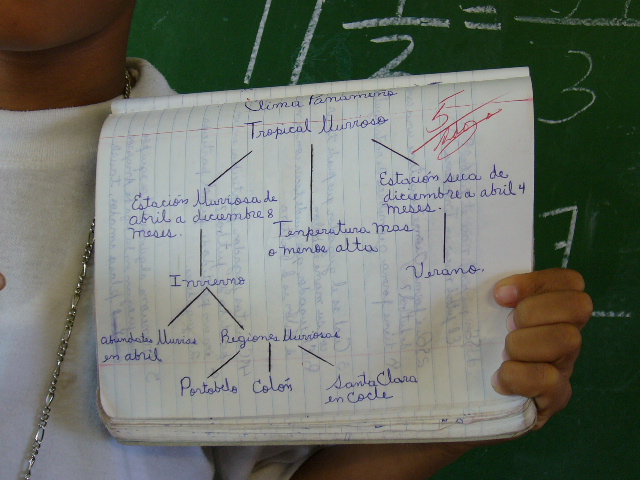 Clima Panameño
Tropical lluvioso
5
Estación lluviosa de
abril a diciembre 8
meses.
Tenperatura mas
o menos alta
Estación seca de
diciembre a abril 4
meses.
Invierno
Verano.
abundates lluvias
en abril
Regiones lluviosas
Portobelo
Colón
Santa Clara
en cocle
1
2
=
3
7